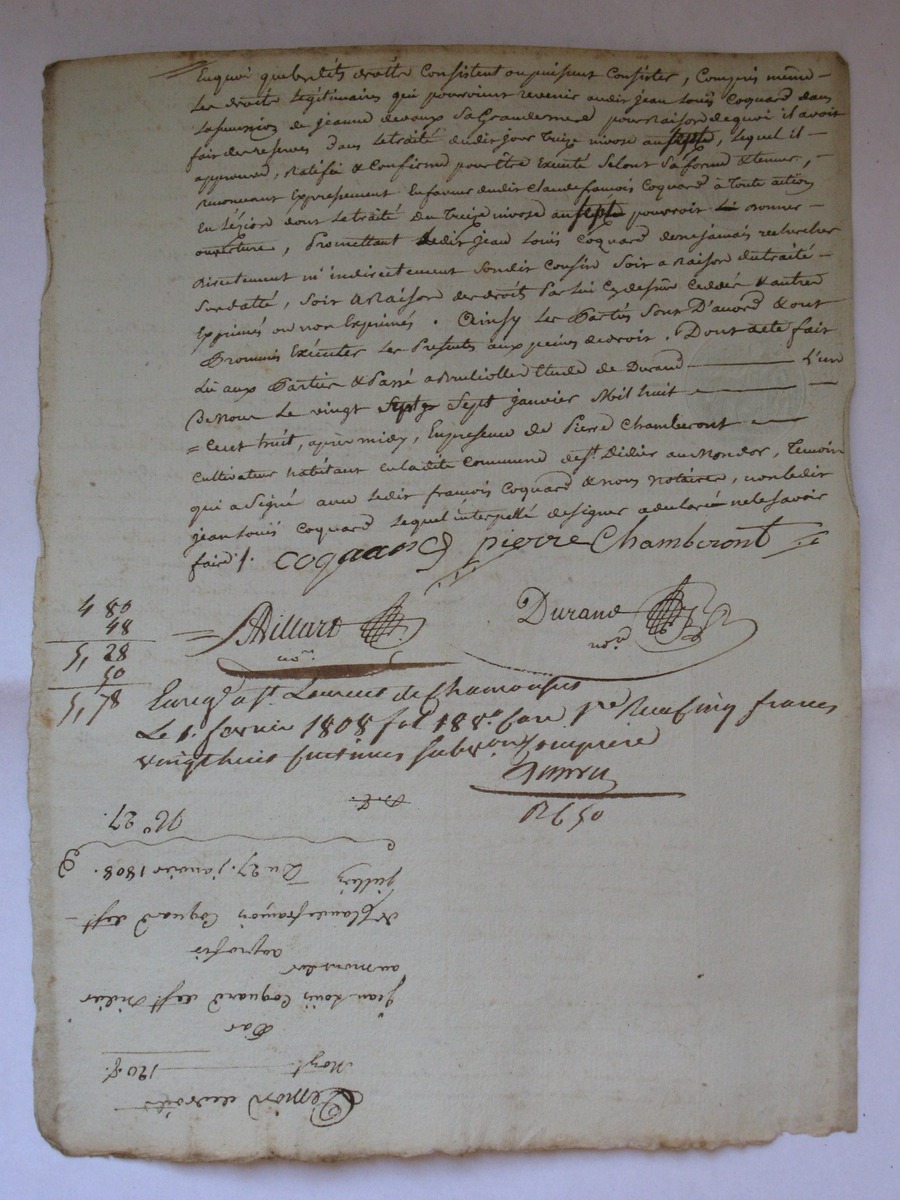 En quoi que lesdits droits Consistent ou puissent Consister, Compris même
Les droits Legitimaires qui pourroient revenir audit jean Louis Coquard dans
La sucession de jeanne devaux Sa Grandemere pour Raison de quoi il avoit
fait des reserves dans Letraité dudit jour treize nivose an sept, Lequel il
approuve, Ratifie & Confirme pour être Exécuté Selont Sa forme & teneur,
renonceant Expressement En faveur dudit Claude françois Coquard à Toute action
En Lézion dont Letraité du treize nivose an sept pourroit donner
ouverture, Promettant Ledit jean Louis Coquard de ne jamais rechercher
directement ni indirectement Sondit Cousin Soit a Raison du traité
Sus datté, Soit a Raison des droits Par Lui Cydessus Ceddés & autres
Exprimés ou non Exprimés. Ainsy Les Parties Sont D'acord & ont
Promis Exécuter Les Presentes aux peines de droit. Dont acte fait
Lû aux Parties & Passé a Brulliolles Etude de Durand L'un
De Nous Le vingt Sept janvier Mil huit
= Cent huit, après midy, En presence de Pierre Chamberont
Cultivateur habitant en Ladite Commune de St. Didier au Mondor, Temoin
qui a Signé avec Ledit françois Coquard & nous notaires, non Ledit
jean Louis Coquard Lequel interpellé de signer a declaré ne le Savoir
faire /.
Coquard pierre Chamberont
Billard
nore.
Durand
nore.
4 80
48
5, 28
50
5, 78
Enregé a St. Laurent de Chamousset
Le 1. fevrier 1808 fol 18 Ro. Case 1re. Reçu cinq francs
vingt huit centimes subvon. comprise
R 6 50
No. 27.
Cession de droits
Moyt. 120 f.
Par
jean Louis Coquard de St. Didier
au mondor
au profit
de Claude françois Coquard de St.
jullien Du 27. janvier 1808.